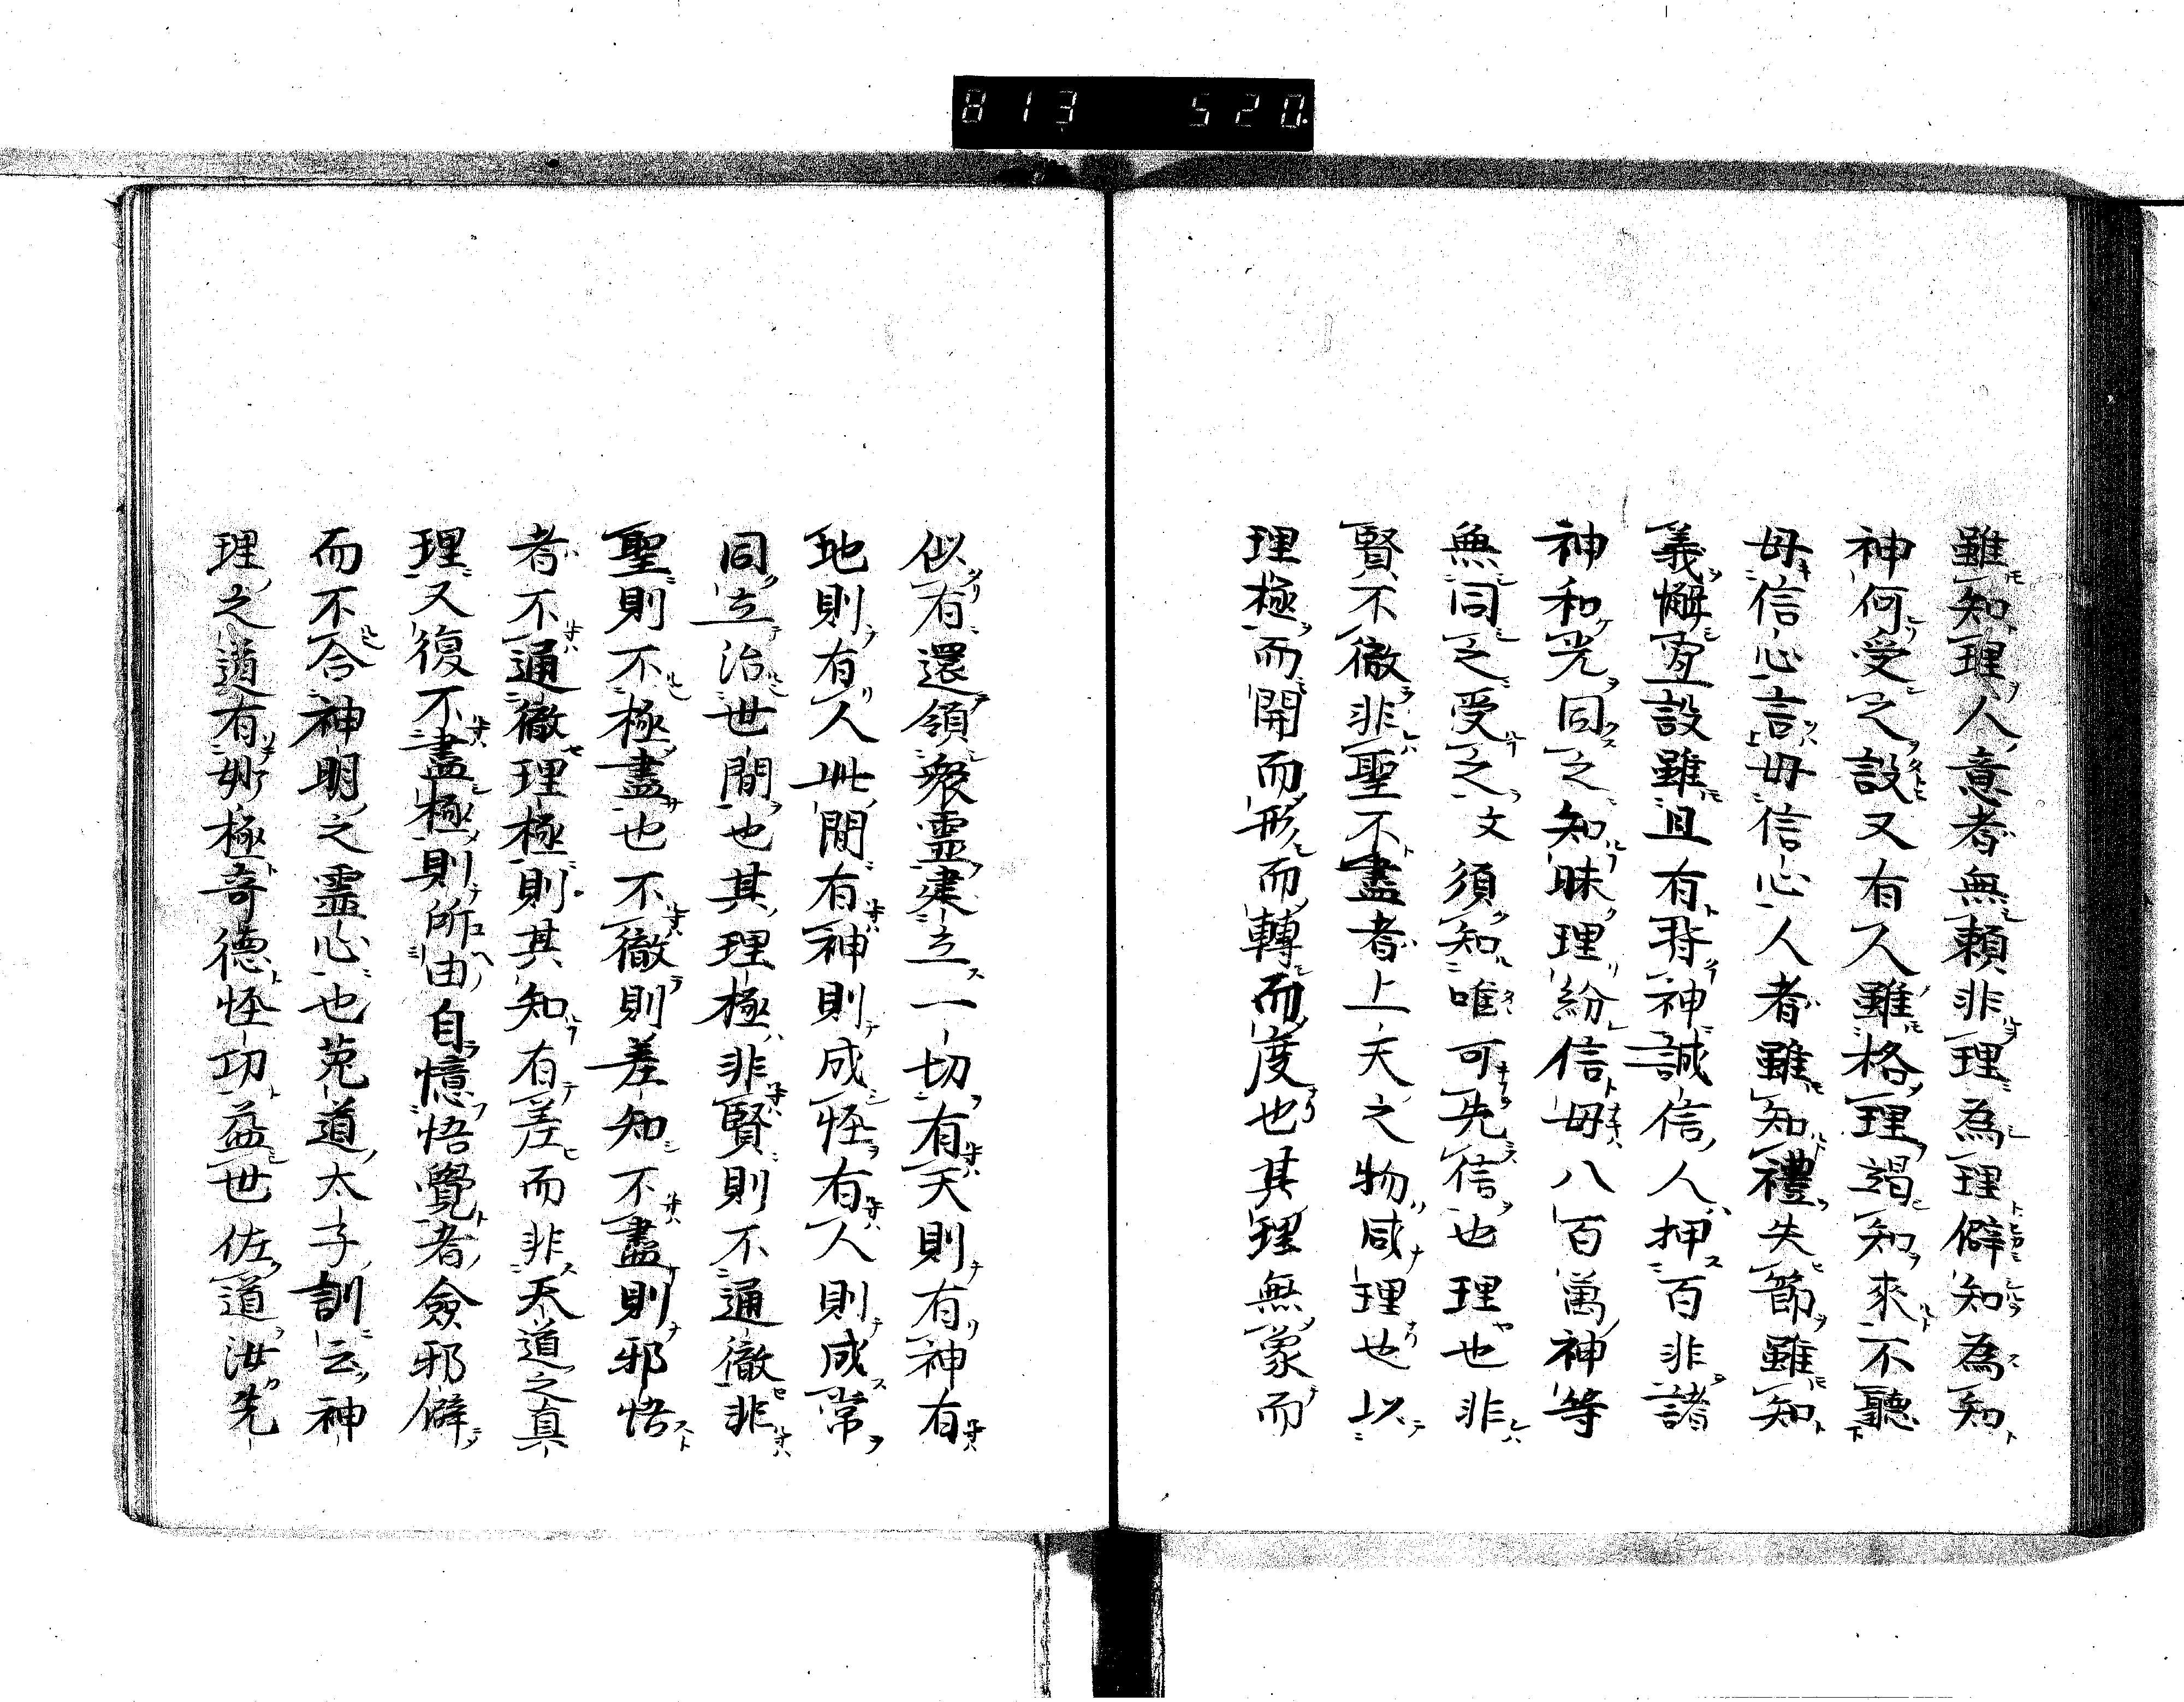 813 520.
雖知理人意者無頼非理為理僻知為知
神何受之設又有人雖格理遏知來不聽
毋信心言毋信心人者雖知禮失節雖知
義懈宜設雖且有背神誠信人押百非諸
神和光同之知昧理紛信毋八百萬神等
無同之受之文須知唯可先信也理也非
賢不徹非聖不盡者上天之物咸理也以
理極而開而形而轉而度也其理無象而
似有還領衆靈建立一切有天則有神有
地則有人此間有神則成怪有人則成常
同立治世間也其理極非賢則不通徹非
聖則不極盡也不徹則差知不盡則邪悟
者不通徹理極則其知有差而非天道之真
理又復不盡極則所由自憶悟覺者僉邪僻
而不合神明之靈心也菟道太子訓云神
理之道有妙極奇德怪功益世佐道汝先